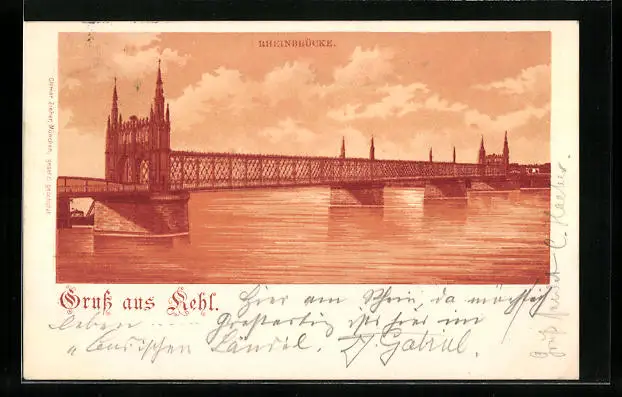 RHEINBRÜCKE.
Ottmar Zieher, München, gesetzl. geschützt
Gruß aus Kehl.
Hier am Rhein, da möcht ich
leben ..... Großartig ist's hier im
"badischen Ländel.
Gruß